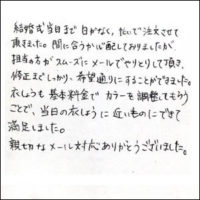 結婚式当日まで日がなく、急いで注文させて
頂きました。間に合うか心配しておりましたが
担当の方がスムーズにメールでやりとりして頂き、
修正までしっかり、希望通りにすることができました。
衣しょうも基本料金でカラーを調整してもらう
ことで、当日の衣しょうに近いものにできて
満足しました。
親切なメール対応ありがとうございました。